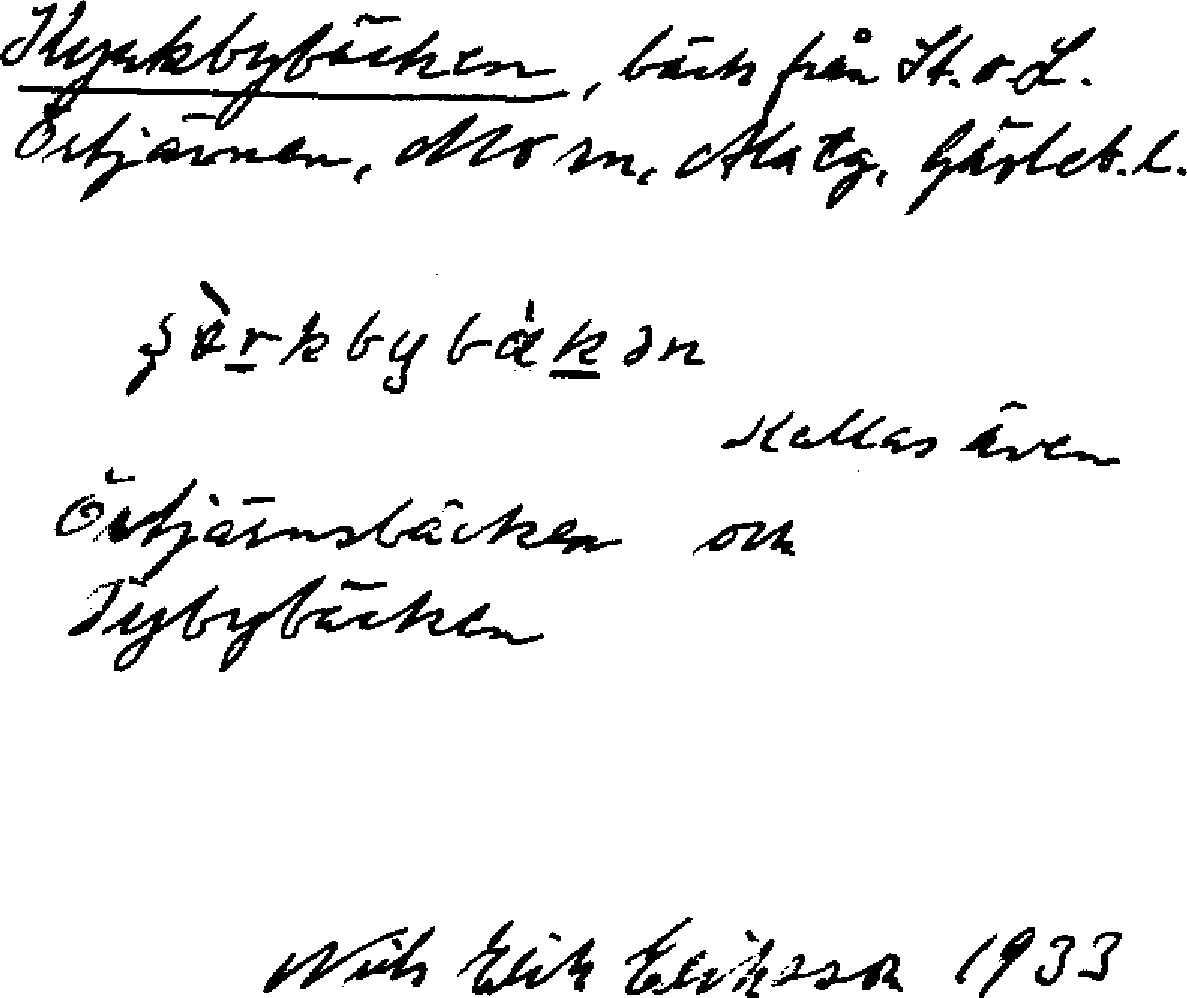 Kyrkbybäcken, bäck från St. o. L.
Örtjärnen, Mo sn, Ala tg, Gävleb. l.
kallas även
Örtjärnsbäcken och
Tybybäcken
Nils Erik Eriksson 1933